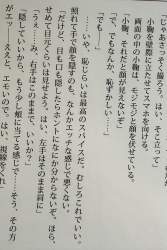 じゃあさっそく撮ろう。はい、そこ立って」
小鞠を壁際に立たせてスマホを向ける。
画面の中の小鞠は、モジモジと顔を伏せている。
「小鞠、それだと顔が見えないぞ」
「で、でもなんか、恥ずかしい……」
……いや、恥じらいは最高のスパイスだ。むしろこれでいい。
照れて手で顔を隠すのも、なんかエッチな感じで悪くない。
「だけど、目も口も隠したらホントになにか分からないぞ。ほら、
せめて目元くらいは見せよう。はい、はそのまま肩に」
「うぇ、み、右手はこのままで、いいか?」
「隠していいから、もう少し に当てる感じで……そう、その方
がエッ ええと、エモいので。はい、視線をくれ